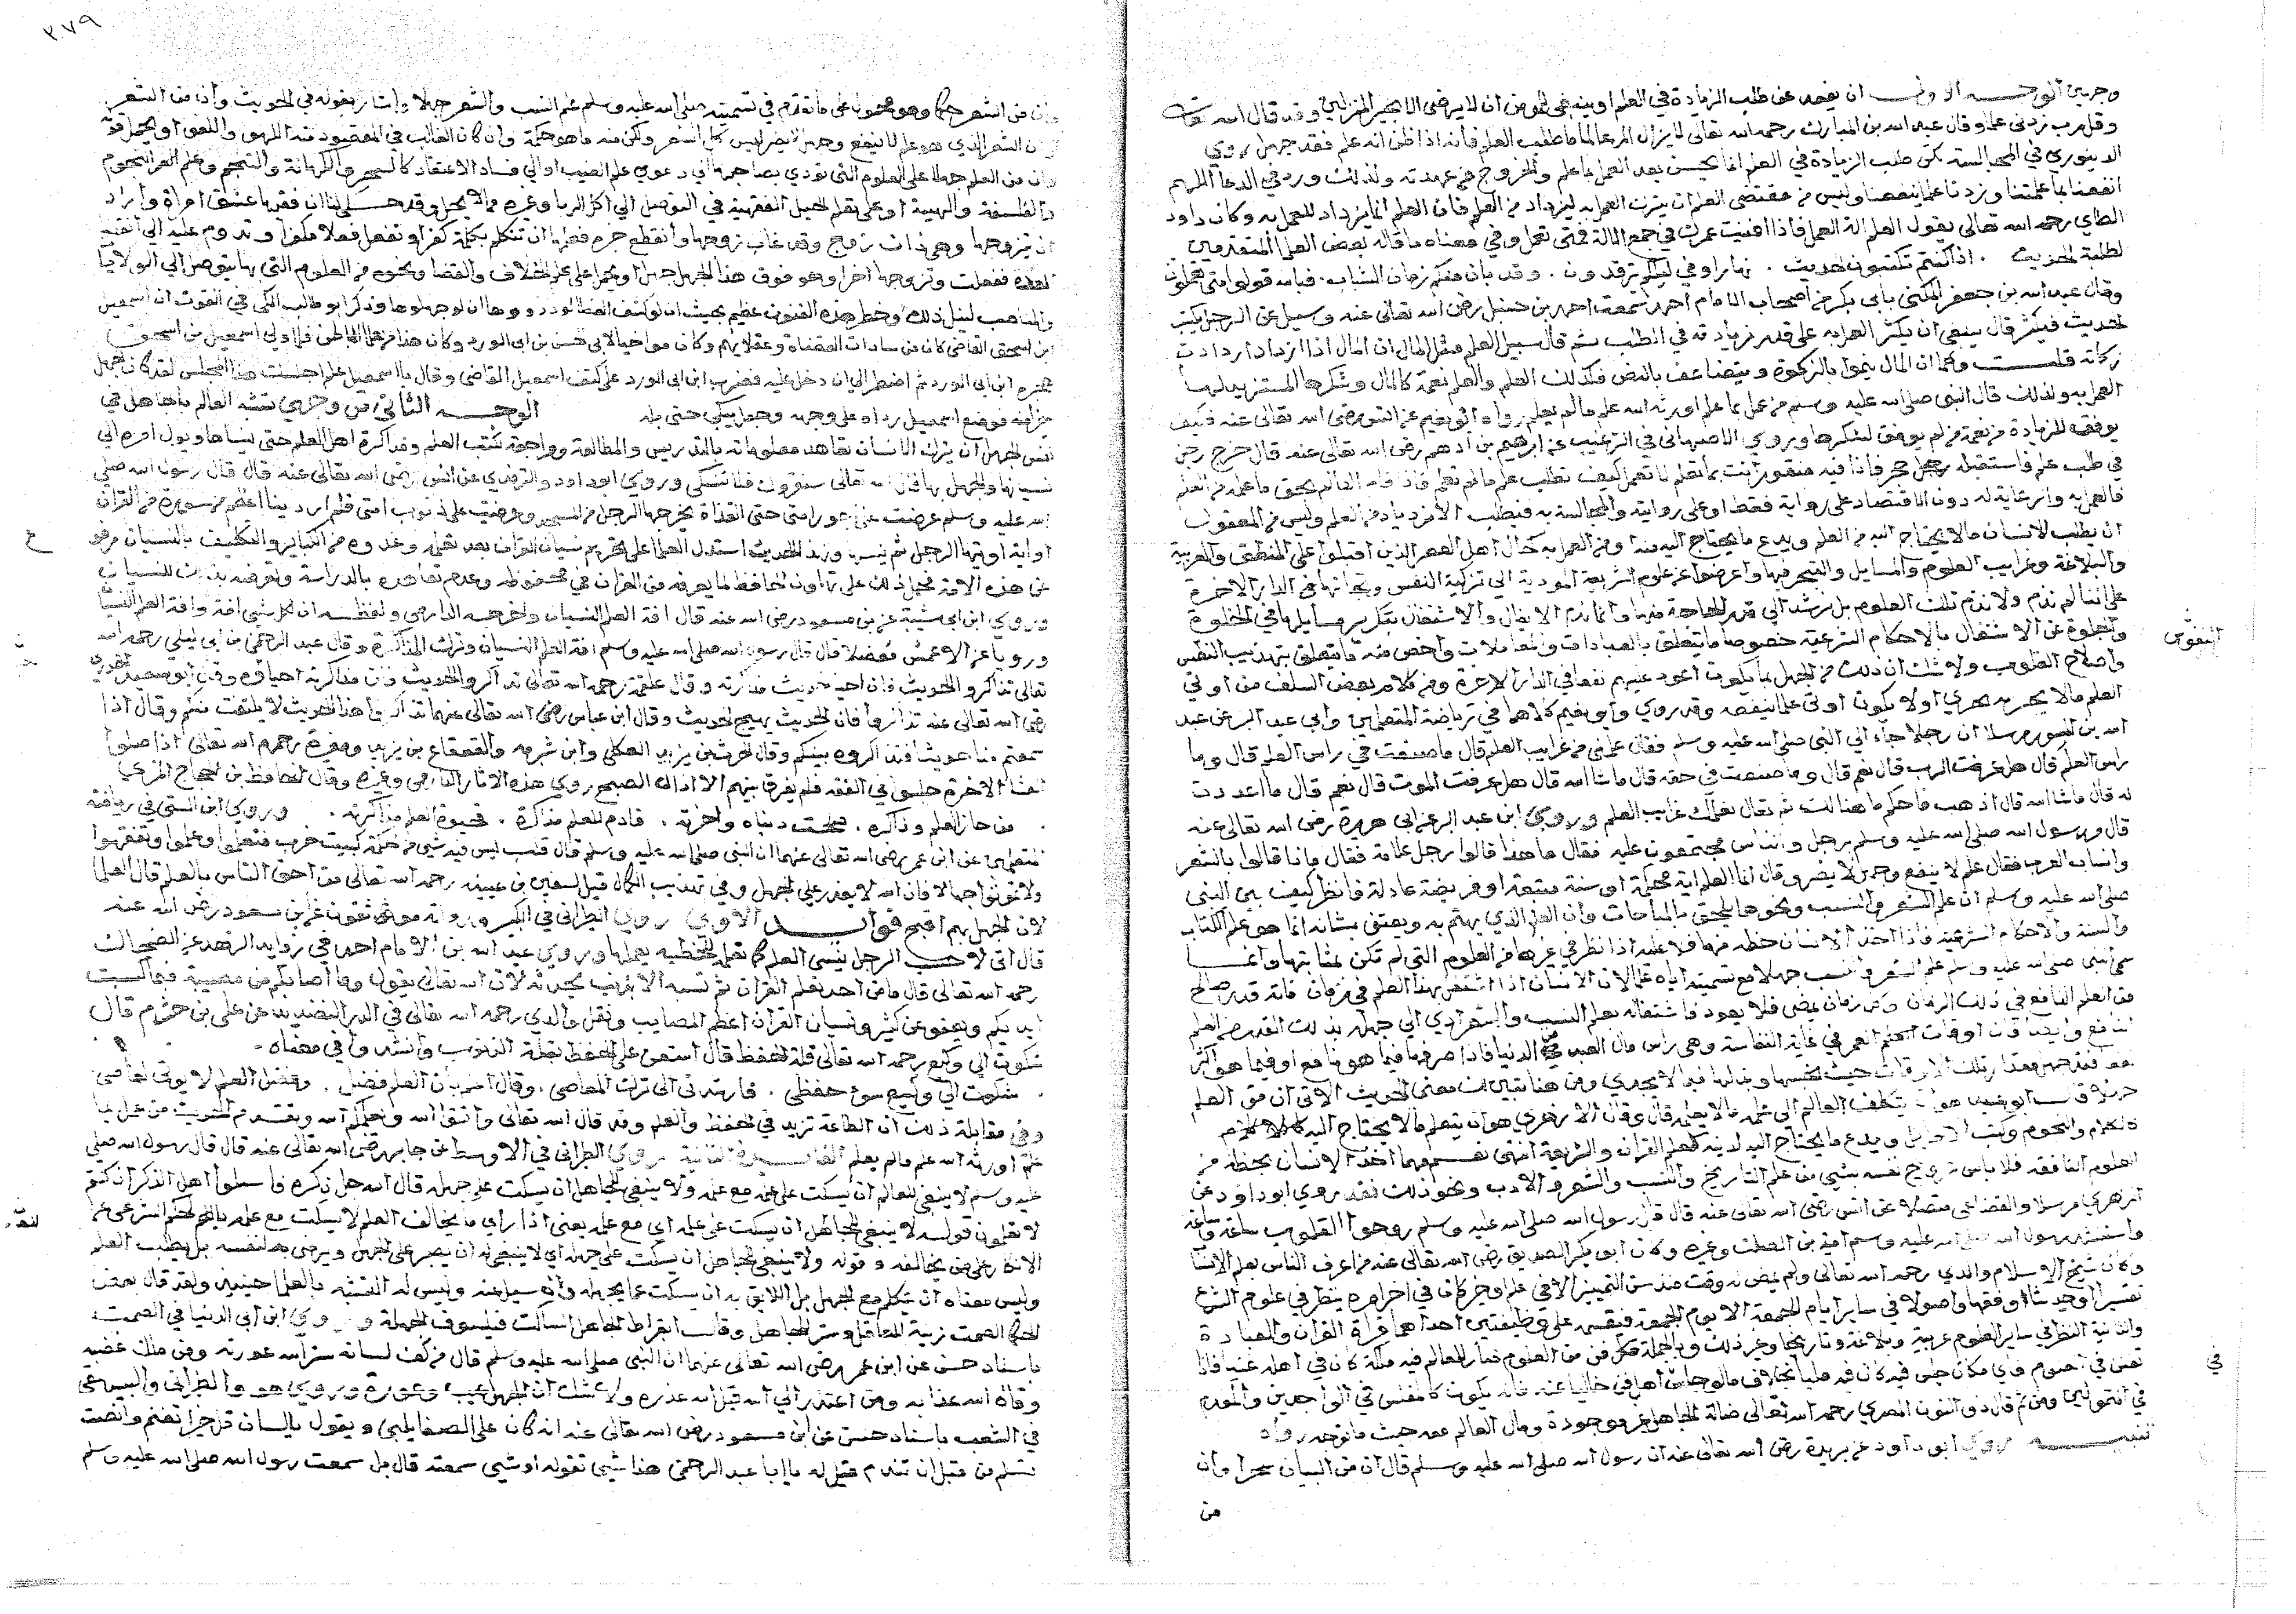 وجزين الوجه الاول ان يقعد عن طلب الزيادة في العلم اوينبغي للمومن ان لا يرضى الا وقد قال الله تعالى
وقل رب زدني علما وقال عبد الله بن المبارك رحمه الله تعالى لا يزال المرء عالما ما طلب العلم فانه اذا ظن انه علم فقد جهل روي
الدينوري في المجالسة لكن طلب الزيادة في العلم انما يحسن بعد العمل بما علم والخروج من عهدته ولذلك ورد في الدعا اللهم
انفعنا بما علمتنا وزدنا علما ينفعنا وليس من مقتضى العلم ان يترك العمل به ليزداد من العلم فان العلم انما يزداد للعمل به وكان داود
الطاي رحمه الله تعالى يقول العلم الة العمل فاذا افنيت عمرك في جمع الالة فمتى تعمل وفي معناه ما قاله بعض العلما المتقدمين
لطلبة الحديث . اذا كنتم تكتبون الحديث . نهارا وفي ليلكم ترقدون . وقد بان منكم زمان الشباب . فبالله قولوا متى تعملون
وقال عبد الله بن جعفر المكنى بابي بكر من اصحاب الامام احمد سمعت احمد بن حنبل رضي الله تعالى عنه وسيل عن الرجل يكتب
الحديث فيكثر قال ينبغي ان يكثر العمل به على قدر زيادته في الطلب ثم قال سبيل العلم مثل المال ان المال اذا ازداد ازدادت
زكاته قلت وكما ان المال ينموا بالزكوة ويتضاعف بالنض فكذلك العلم والعلم نعمة كالمال وشكرها المستزيد لها
العمل به ولذلك قال النبي صلى الله عليه وسلم من عمل بما علم اورثه الله علم ما لم يعلم رواه ابو نعيم عن انس رضي الله تعالى عنه فكيف
يوفق للزيادة من نعمة من لم يوفق لشكرها وروى الاصبهاني في الترغيب عن ابرهيم بن ادهم رضي الله تعالى عنه قال خرج رجل
في طلب علم فاستقبله حجر فاذا فيه منقور انت بما تعلم لا تعمل كيف تطلب علم ما لم تعلم فاذا قام العالم بحق ما علمه من العلم
فالعمل به والرعاية له دون الاقتصاد على رواية فقط او على روايته والمجالسة به فيطلب الازدياد من العلم وليس من المعقول
ان يطلب الانسان ما لا يحتاج اليه من العلم ويدع ما يحتاج اليه منه ومن العمل به كحال اهل العصر الذين اقبلوا على المنطق والعربية
والبلاغة وغرايب العلوم والمسايل والتبحر فيها واعرضوا عن علوم الشريعة المودية الى تزكية النفس ونجاتها في الدار الاخرة
على اننا لم نذم ولا نذم تلك العلوم بل نرشد الى قدر الحاجة منها وانما نذم الايغال والاشتغال بتكرير مسايلها في الخلوة
والجلوة عن الاشتغال بالاحكام الشرعية خصوصا ما يتعلق بالعبادات والمعاملات واخص منه ما يتعلق بتهذيب النفس
النفوس
واصلاح القلوب ولا شك ان ذلك من الجهل بما يكون اعود عليهم نفعا في الدار الاخرة ومن كلام بعض السلف من اوتي
العلم ما لا يحز به لحري اولا يكون اوتي علما ينفعه وقد روي وابو نعيم كلاهما في رياضة المتعلمين وابي عبد البر عن عبد
الله بن المسور مرسلا ان رجلا جاء الى النبي صلى الله عليه وسلم فقال علمني من غرايب العلم قال ما صنعت في راس العلم قال وما
راس العلم قال هل عرفت الرب قال نعم قال وما صنعت في حقه قال ما شا الله قال هل عرفت الموت قال نعم قال ما اعددت
له قال ما شا الله قال اذهب فاحكم ما هنالك ثم تعال نعلمك غرايب العلم وروى ابن عبد البر عن ابي هريرة رضي الله تعالى عنه
قال ورسول الله صلى الله عليه وسلم برجل والناس مجتمعون عليه فقال ما هذا قالوا رجل علامة فقال بماذا قالوا بالشعر
وانساب العرب فقال علم لا ينفع وجهل لا يضر وقال انما العلم اية محكمة او سنة متبعة او فريضة عادلة فانظر كيف بين النبي
صلى الله عليه وسلم ان علم الشعر والنسب ونحوها يلحق بالمباحات وان العلم الذي يهتم به ويعتنى بشانه انما هو علم الكتاب
والسنة والاحكام الشرعية فاذا اخذ الانسان حظه منها فلا عليه اذا نظر في غيرها من العلوم التي لم تكن بمثابتها وانما
سمى النبي صلى الله عليه وسلم علم الشعر والنسب جهلا مع تسميته اياه علما لان الانسان اذا اشتغل بهذا العلم في زمان فاته قدر صالح
من العلم النافع في ذلك الزمان وكل زمان يمضي فلا يعود فاشتغاله بعلم النسب والشعر ادى الى جهله بذلك القدر من العلم
النافع وايضا فان اوقات العمر في غاية النفاسة وهي راس مال العبد في الدنيا فاذا صرفها فيما هو نافع او فيما هو اكثر
الاوقات حيث بخسها وبذلها فيما لا يجدي ومن هنا يتبين لك معنى الحديث الاتي ان من العلم
جهلا قال ابو عبيد هو ان يتكلف العالم الى علمه ما لا يعلمه قال وقال الازهري هو ان يتعلم ما لا يحتاج اليه
كالكلام والنجوم وكتب الاوايل ويدع ما يحتاج اليه لدينه كعلم القران والشريعة انتهى نعم مهما اخذ الانسان بحظه من
العلوم النافعة فلا باس ترويح نفسه بشي من علم التاريخ والنسب والشعر والادب ونحو ذلك فقد روى ابو داود عن
الزهري مرسلا والقضاعي متصلا عن انس رضي الله تعالى عنه قال قال رسول الله صلى الله عليه وسلم روحوا القلوب ساعة وساعة
واستنشد رسول الله صلى الله عليه وسلم امية بن الصلت وغيره وكان ابو بكر الصديق رضي الله تعالى عنه من اعرف الناس بعلم الانساب
وكان شيخ الاسلام والدي رحمه الله تعالى ولم يمض له وقت منذ سن التمييز الا في علم او خير كانا في اخر امره ينظر في علوم الشرع
تفسيرا وحديثا وفقها واصولا في ساير ايام الجمعة الا يوم الجمعة فيقسمه على وظيفتين احداهما قراة القران والعبادة
والثانية النظر في ساير العلوم عربية وبلاغة وتاريخا وغير ذلك وبالجملة فكل فن من العلوم
في
في اي مكان جلس فيه كان فيه مليا بخلاف ما لو جالس اهل فن خاليا عنه فانه يكون كالمفلس في الواجدين والمعدم
في المتمولين ومن ثم قال ذو النون المصري رحمه الله تعالى ضالة الجاهل غير موجودة ومال العالم معه حيث ما توجه رواه
تنبيه روى ابو داود عن بريدة رضي الله تعالى عنه ان رسول الله صلى الله عليه وسلم قال ان من البيان سحرا وان
من
٢٧٩
وان من الشعر حكما وهو محمول على ما تقدم في تسميته صلى الله عليه وسلم علم النسب والشعر جهلا واشار بقوله في الحديث وان من الشعر
الى ان الشعر الذي هو علم لا ينفع وجهل لا يضر ليس كل الشعر ولكن منه ما هو حكمة وان كان الغالب في المقصود منه اللهو واللغو او يحمل قوله
وان من العلم جهلا على العلوم التي تودي بصاحبها الى دعوى علم الغيب او الى فساد الاعتقاد كالسحر والكهانة والتنجيم وعلم النجوم
والفلسفة والهيية او على تعلم الحيل الفقهية في التوصل الى اكل الربا وغيره مما لا يحل وقد حكى لنا ان فقيها عشق امراة واراد
ان يتزوجها وهي ذات زوج وقد غاب زوجها وانقطع خبره فعلمها ان تتكلم بكلمة كفر او تفعل فعلا مكفرا وتدوم عليه الى انقضا
العدة ففعلت وتزوجها اخرا وهو فوق هذا الجهل جهل او يحمل على علم الخلاف والقضا ونحوه من العلوم التي بها يتوصل الى الولايات
والمناصب لنيل ذلك وخطر هذه الفنون عظيم بحيث ان لو كشف الغطا لودوا ان لو جهلوها وذكر ابو طالب المكي في القوت ان اسمعيل
ابن اسحق القاضي كان من سادات القضاة وعقلايهم وكان مواخيا لابي الحسن بن ابي الورد وكان هذا من اهل الباطن فلما ولي اسمعيل بن اسحق
هجره ابن ابي الورد ثم اضطر الى ان دخل عليه فضرب ابن ابي الورد على كتف اسمعيل القاضي وقال يا اسمعيل علم اجلسك هذا المجلس لقد كان الجهل
خيرا منه فوضع اسمعيل رداه على وجهه وجعل يبكي حتى بله الوجه الثاني من وجوه تشبه العالم بالجاهل في
نفس الجهل ان يترك الانسان تعاهد معلوماته بالتدريس والمطالعة ومراجعة كتب العلم ومذاكرة اهل العلم حتى ينساها ويول امره الى
نسيانها والجهل بها قال الله تعالى سنقريك فلا تنسى وروى ابو داود والترمذي عن انس رضي الله تعالى عنه قال قال رسول الله صلى
الله عليه وسلم عرضت علي اجور امتي حتى القذاة يخرجها الرجل من المسجد وعرضت علي ذنوب امتي فلم ار ذنبا اعظم من سورة من القران
ع
او اية اوتيها الرجل ثم نسيها وبهذا الحديث استدل العلما على تحريم نسيان القران بعد تعلمه وعدوه من الكباير والتكليف بالنسيان مرفوع
عن هذه الامة فحمل ذلك على تهاون الحافظ لما يعرفه من القران في محفوظه وعدم تعاهده بالدراسة وتعرضه بذلك للنسيان
وروى ابن ابي شيبة عن بن مسعود رضي الله عنه قال افة العلم النسيان واخرجه الدارمي ولفظه ان لكل شي افة وافة العلم النسيان
ورويا عن الاعمش معضلا قال قال رسول الله صلى الله عليه وسلم افة العلم النسيان وترك المذاكرة وقال عبد الرحمن بن ابي ليلى رحمه الله
تعالى تذاكروا الحديث فان احيا الحديث مذاكرته وقال علقمة رحمه الله تعالى تذاكروا الحديث فان مذاكرته احياؤه وقال ابو سعيد الخدري
رضي الله تعالى عنه تذاكروا فان الحديث يهيج الحديث وقال ابن عباس رضي الله تعالى عنهما تذاكروا هذا الحديث لا ينفلت منكم وقال اذا
سمعتم منا حديثا فتذاكروه بينكم وقال الحرث بن يزيد العكلي وابن شبرمة والقعقاع بن يزيد ومغيرة رحمهم الله تعالى اذا صلوا
العشا الاخرة جلسوا في الفقه فلم يفرق بينهم الا اذان الصبح روى هذه الاثار الدارمي وغيره وقال الحافظ بن الحجاج المزي
. من حاز العلم وذاكره . صلحت دنياه واخرته . فادم للعلم مذاكرة . فحيوة العلم مذاكرته . وروى ابن السني في رياضة
المتعلمين عن ابن عمر رضي الله تعالى عنهما ان النبي صلى الله عليه وسلم قال قلب ليس فيه شي من حكمة كبيت خرب فتعلموا وعلموا وتفقهوا
ولا تموتوا جهالا فان الله لا يعذر على الجهل وفي تهذيب الكمال قيل لسفين بن عيينة رحمه الله تعالى من احق الناس بالعلم قال العلما
لان الجهل بهم اقبح فوايد الاولى روى الطبراني في الكبير ورواته موثقون عن بن مسعود رضي الله عنه
قال اني لاحسب الرجل ينسى العلم كما تعلمه للخطية يعملها وروى عبد الله بن الامام احمد في زوايد الزهد عن الضحاك
رحمه الله تعالى قال ما من احد تعلم القران ثم نسيه الا بذنب يحدثه لان الله تعالى يقول وما اصابكم من مصيبة فبما كسبت
ايديكم ويعفو عن كثير ونسيان القران اعظم المصايب ونقل والدي رحمه الله تعالى في الدر النضيد عن علي بن خشرم قال
شكوت الى وكيع رحمه الله تعالى قلة الحفظ قال استعن على الحفظ بقلة الذنوب وانشدوا في معناه .
. شكوت الى وكيع سوء حفظي . فارشدني الى ترك المعاصي . وقال اخبر بان العلم فضل . وفضل العلم لا يوتى لعاصي
وفي مقابلة ذلك ان الطاعة تزيد في الحفظ والعلم وقد قال الله تعالى واتقوا الله ويعلمكم الله وتقدم الحديث من عمل بما
علم اورثه الله علم ما لم يعلم الفايدة الثانية روى الطبراني في الاوسط عن جابر رضي الله تعالى عنه قال قال رسول الله صلى
عليه وسلم لا ينبغي للعالم ان يسكت على علمه ولا ينبغي للجاهل ان يسكت على جهله قال الله جل ذكره فاسئلوا اهل الذكر ان كنتم
لا تعلمون قوله لا ينبغي ان يسكت على علمه اي مع علمه يعني اذا راى ما يخالف العلم لا يسكت مع علمه
الانكار على من يخالفه وقوله ولا ينبغي للجاهل ان يسكت على جهله اي لا ينبغي له ان يصر على الجهل ويرضى به لنفسه بل يطلب العلم
وليس معناه ان يتكلم مع الجهل بل اللايق به ان يسكت عما يجهله وليس له التشبه بالعلما حينيذ ولقد قال بعض
الحكما الصمت زينة للعاقل وستر للجاهل وقال ابقراط الجاهل الساكت فيلسوف الجهلة وروى ابن ابي الدنيا في الصمت
باسناد حسن عن ابن عمر رضي الله تعالى عنهما ان النبي صلى الله عليه وسلم قال من كف لسانه ستر الله عورته ومن ملك غضبه
وقاه الله عذابه ومن اعتذر الى الله قبل الله عذره ولا شك ان الجهل عيب وعورة وروى هو والطبراني والبيهقي
في الشعب باسناد حسن عن ابن مسعود رضي الله تعالى عنه انه كان على الصفا يلبي ويقول يا لسان قل خيرا تغنم وانصت
تسلم من قبل ان تندم قيل له يا ابا عبد الرحمن هذا شي تقوله او شي سمعته قال بل سمعت رسول الله صلى الله عليه وسلم